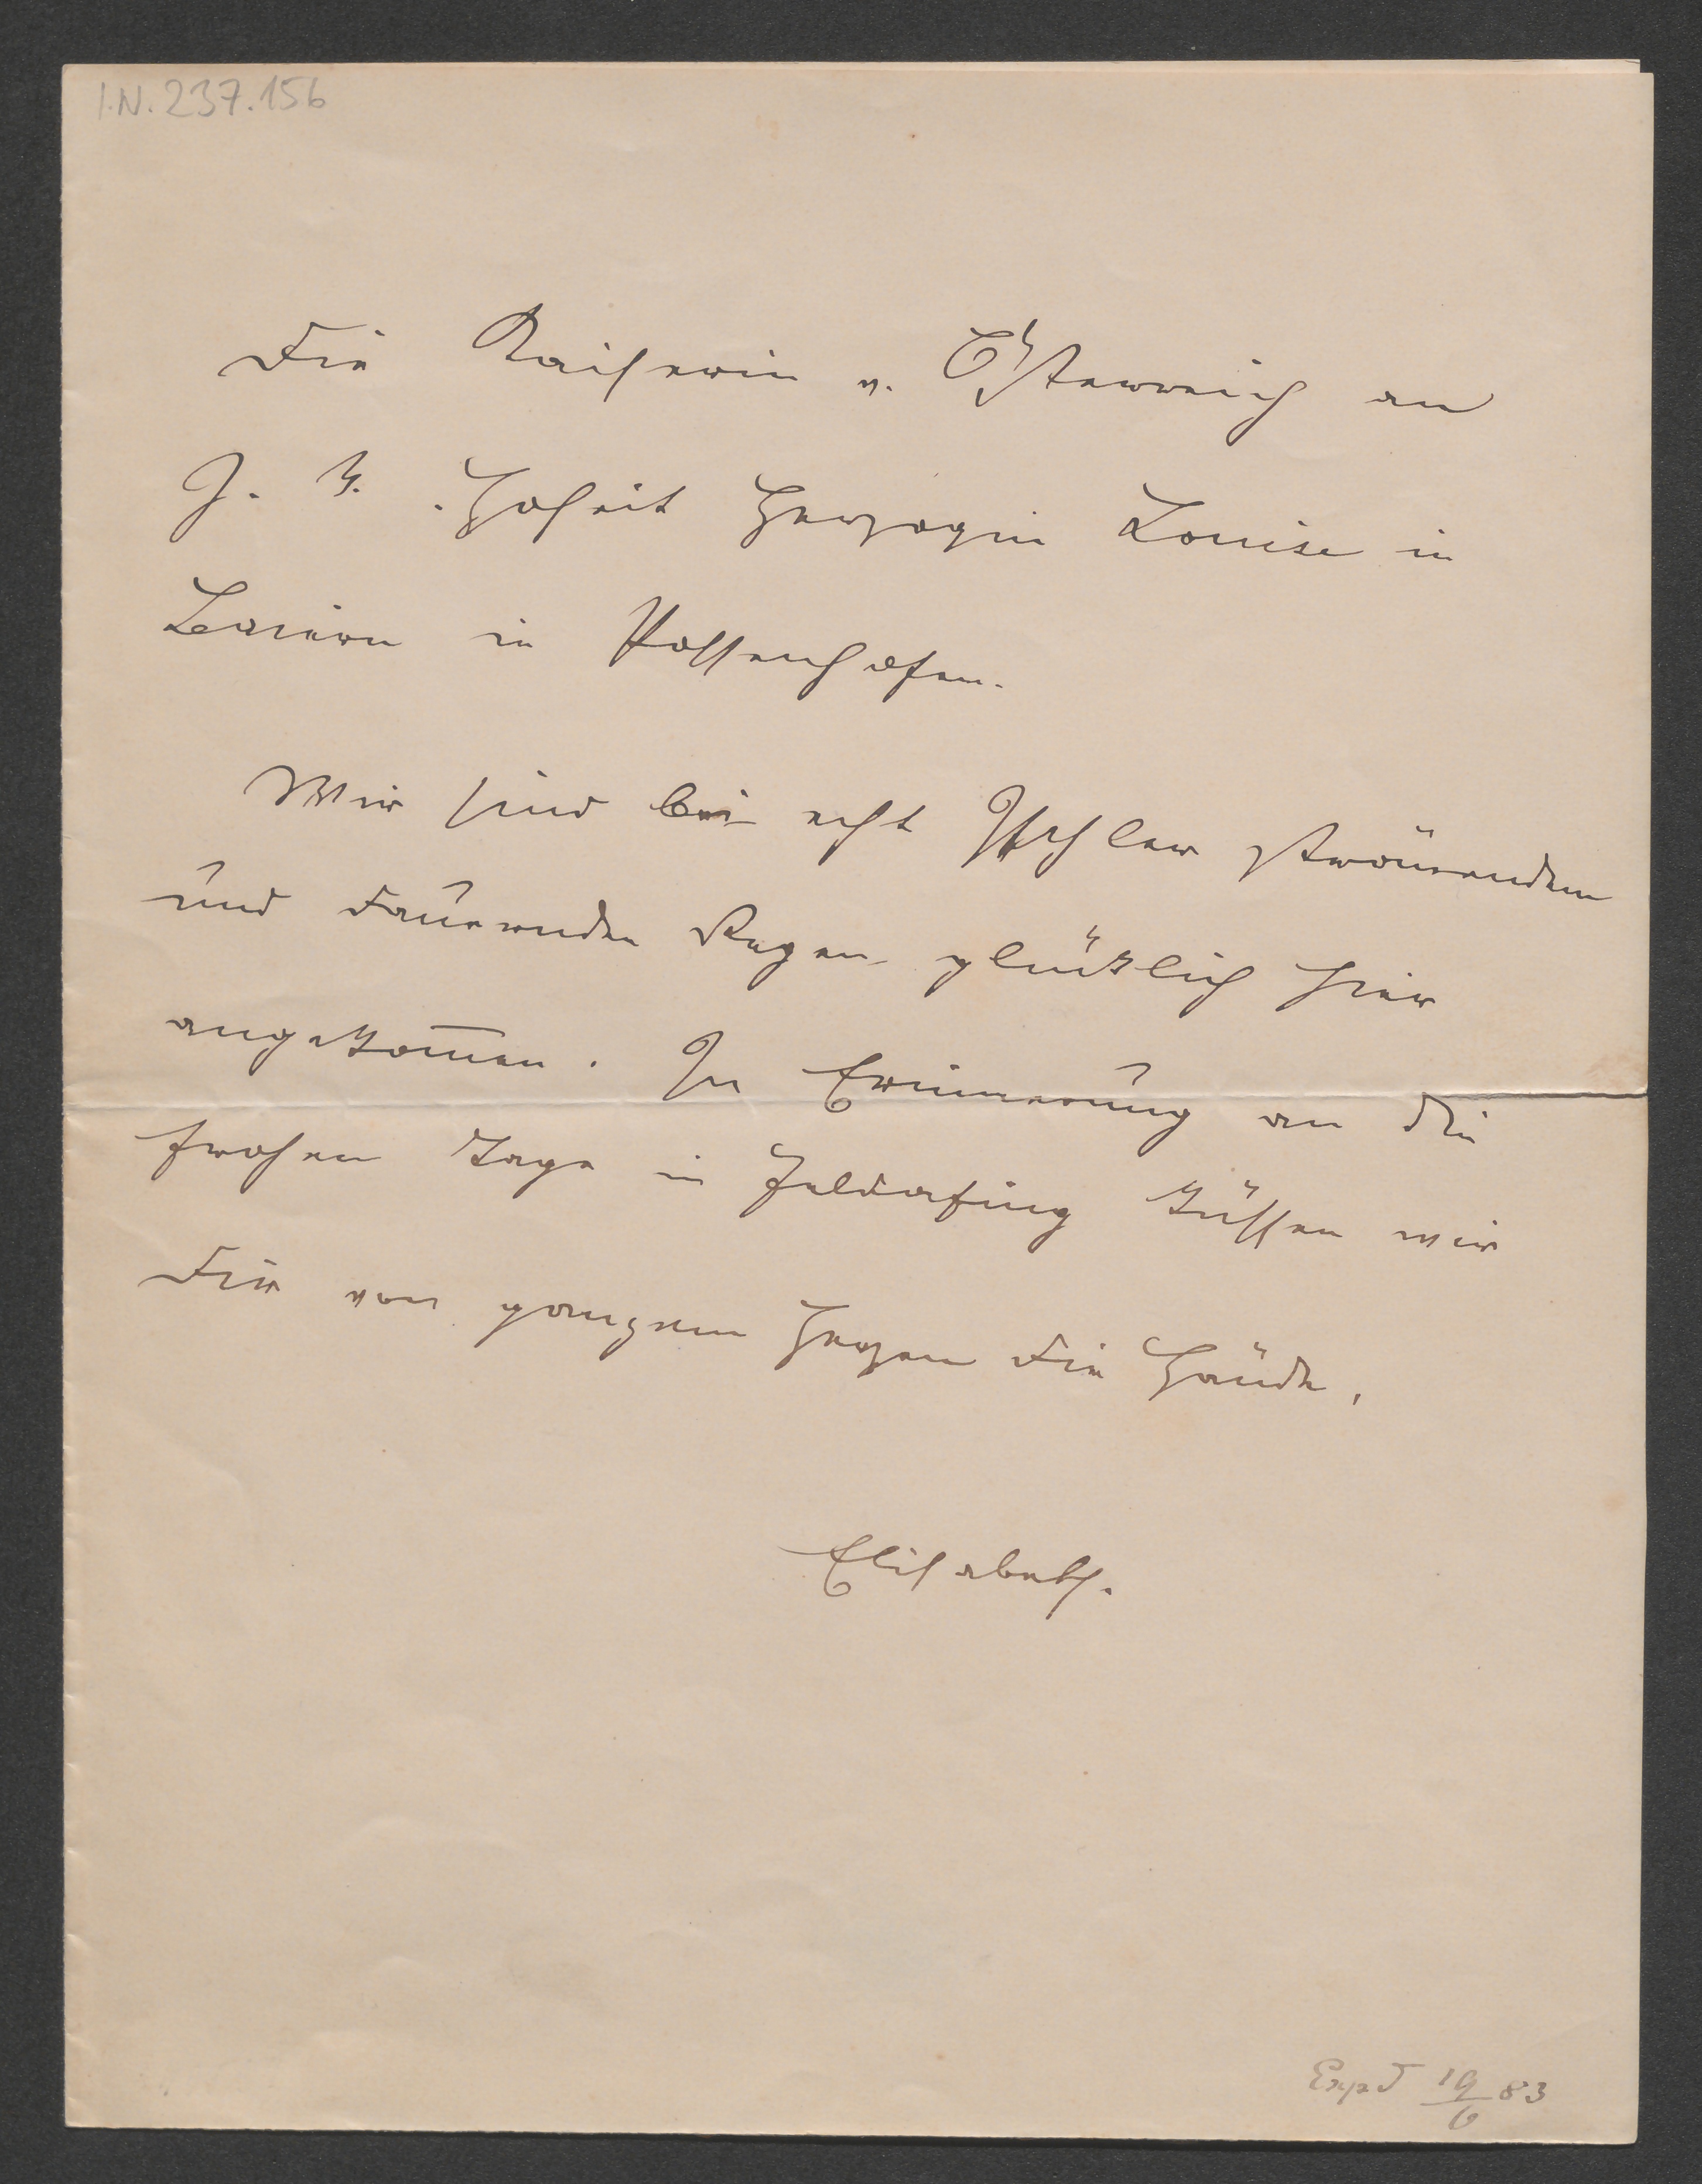 I.N. 237.156
Die Kaiserin v. Österreich an
I. K. Hoheit Herzogin Louise in
Baiern in Possenhofen.
Wir sind bei echt Ischler strömenden
und dauernden Regen glücklich hier
angekom̄en. In Erinnerung an die
frohen Tage in Feldafing küssen wir
Dir von ganzem Herzen die Hände,
Elisabeth.
Expd 19/6 83